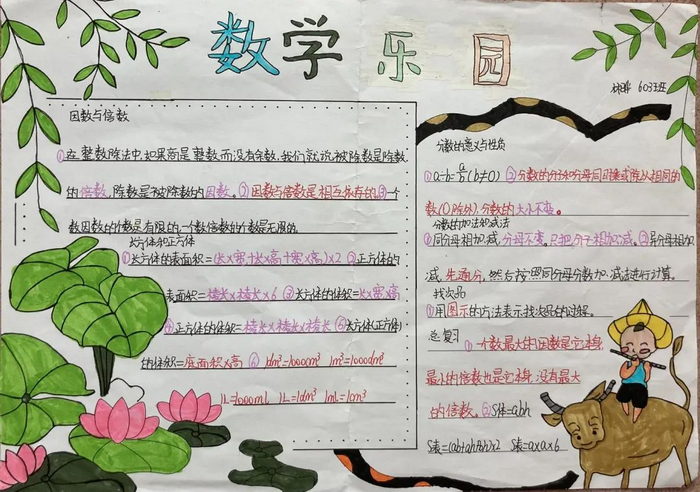 数学乐园
603班
因数与倍数
①在整数除法中,如果商是整数而没有余数,我们就说被除数是除数
的倍数,除数是被除数的因数。②因数与倍数是相互依存的。③一个
数因数的个数是有限的,一个数倍数的个数是无限的。
长方体和正方体
①长方体的表面积=(长×宽+长×高+宽×高)×2 ②正方体的
表面积=棱长×棱长×6 ③长方体的体积=长×宽×高
④正方体的体积=棱长×棱长×棱长 ⑤长方体(正方体)
的体积=底面积×高 ⑥1dm³=1000cm³ 1m³=1000dm³
1L=1000ml 1L=1dm³ 1ml=1cm³
分数的意义与性质
①a÷b=a/b(b≠0) ②分数的分子和分母同时乘或除以相同的
数(0除外),分数的大小不变。
分数的加法和减法
①同分母相加减,分母不变,只把分子相加减。②异分母相加
减,先通分,然后按照同分母分数加、减法进行计算。
找次品
①用图示的方法表示找次品的过程。
总复习
①一个数最大的因数是它本身,
最小的倍数也是它本身,没有最大
的倍数。②S体=abh
S表=(ab+ah+bh)×2 S表=a×a×6